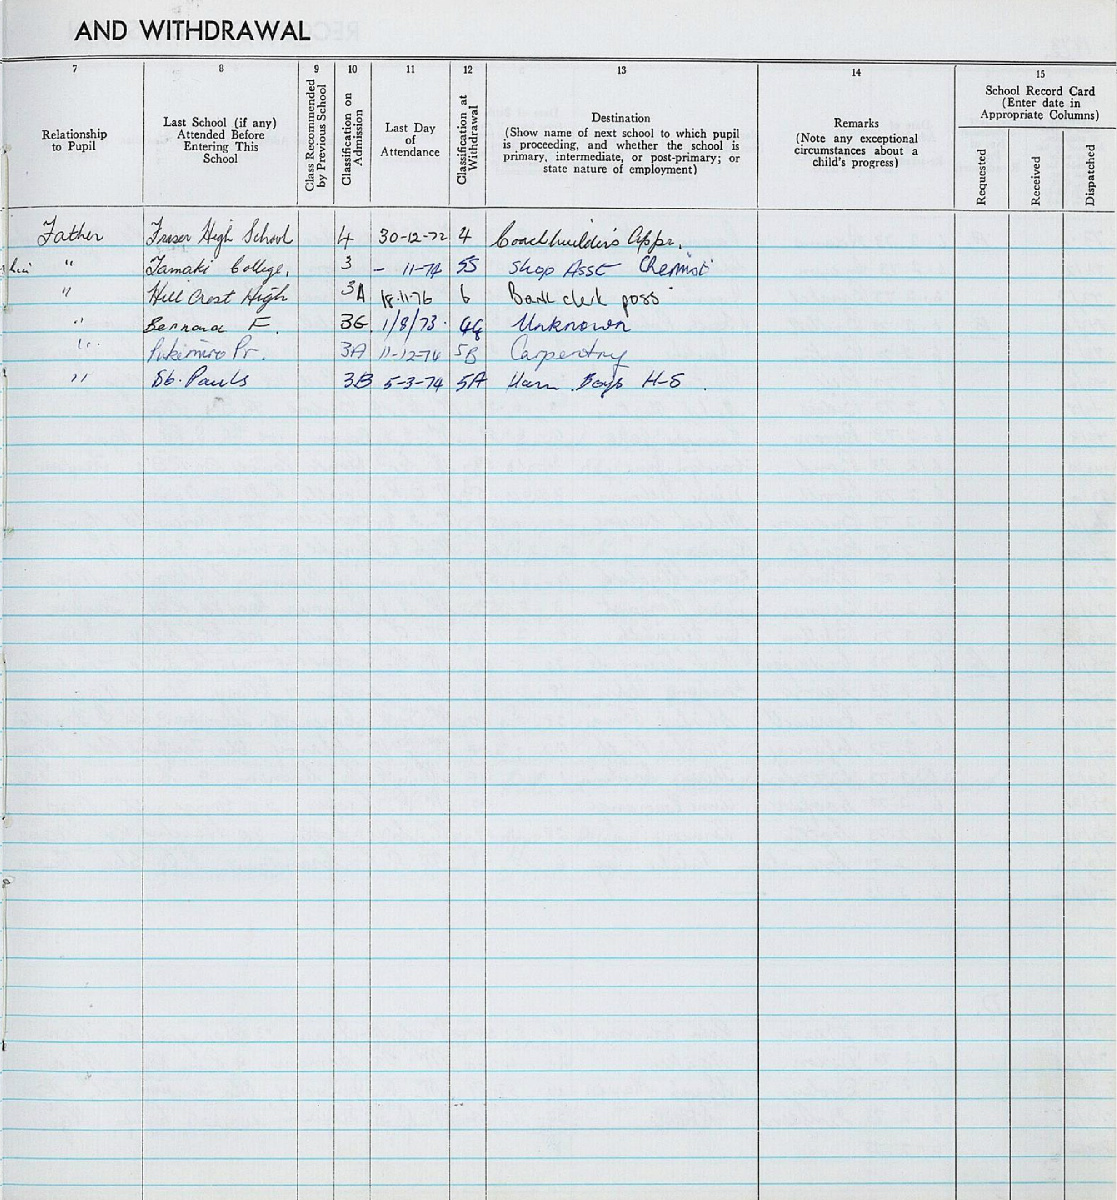 AND WITHDRAWAL
7 8 9 10 11 12 13 14 15
Relationship to Pupil
Last School (if any) Attended Before Entering This School
Class Recommended by Previous School
Classification on Admission
Last Day of Attendance
Classification at Withdrawal
Destination
(Show name of next school to which pupil is proceeding, and whether the school is primary, intermediate, or post-primary; or state nature of employment)
Remarks
(Note any exceptional circumstances about a child's progress)
School Record Card
(Enter date in Appropriate Columns)
Requested Received Dispatched
Father Fraser High School 4 30-12-72 4 Coachbuilder's Appr.
" Tamaki College. 3 - 11-74 5S Shop Asst Chemist
" Hill Crest High 3A 18-11-76 6 Bank clerk poss
" F. 3G 1/8/73. Unknown
" Pukemiro Pr. 3A 11-12-76 5B Carpentry
" St. Pauls 3B 5-3-74 5A Ham Boys H-S.